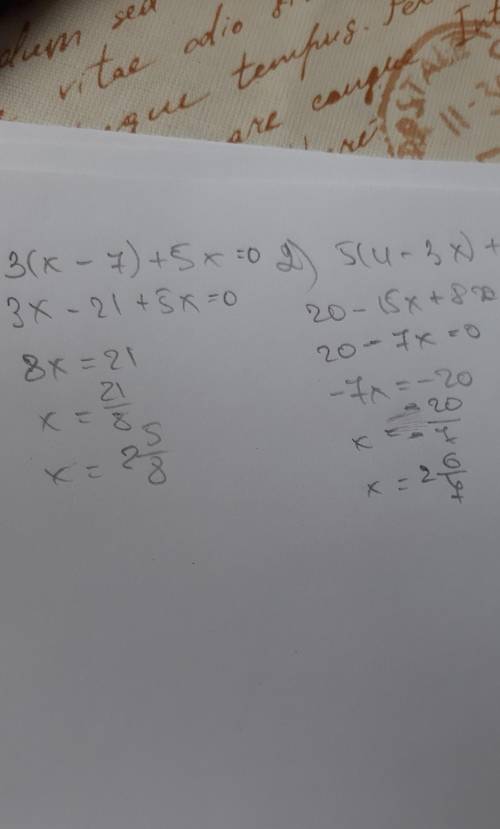 vitae odio
tempus.
are congue
3(x - 7) + 5x = 0
3x - 21 + 5x = 0
8x = 21
x = 21/8
x = 2 5/8
2) 5(4 - 3x) +
20 - 15x + 8
20 - 7x = 0
-7x = -20
x = -20/-7
x = 2 6/7